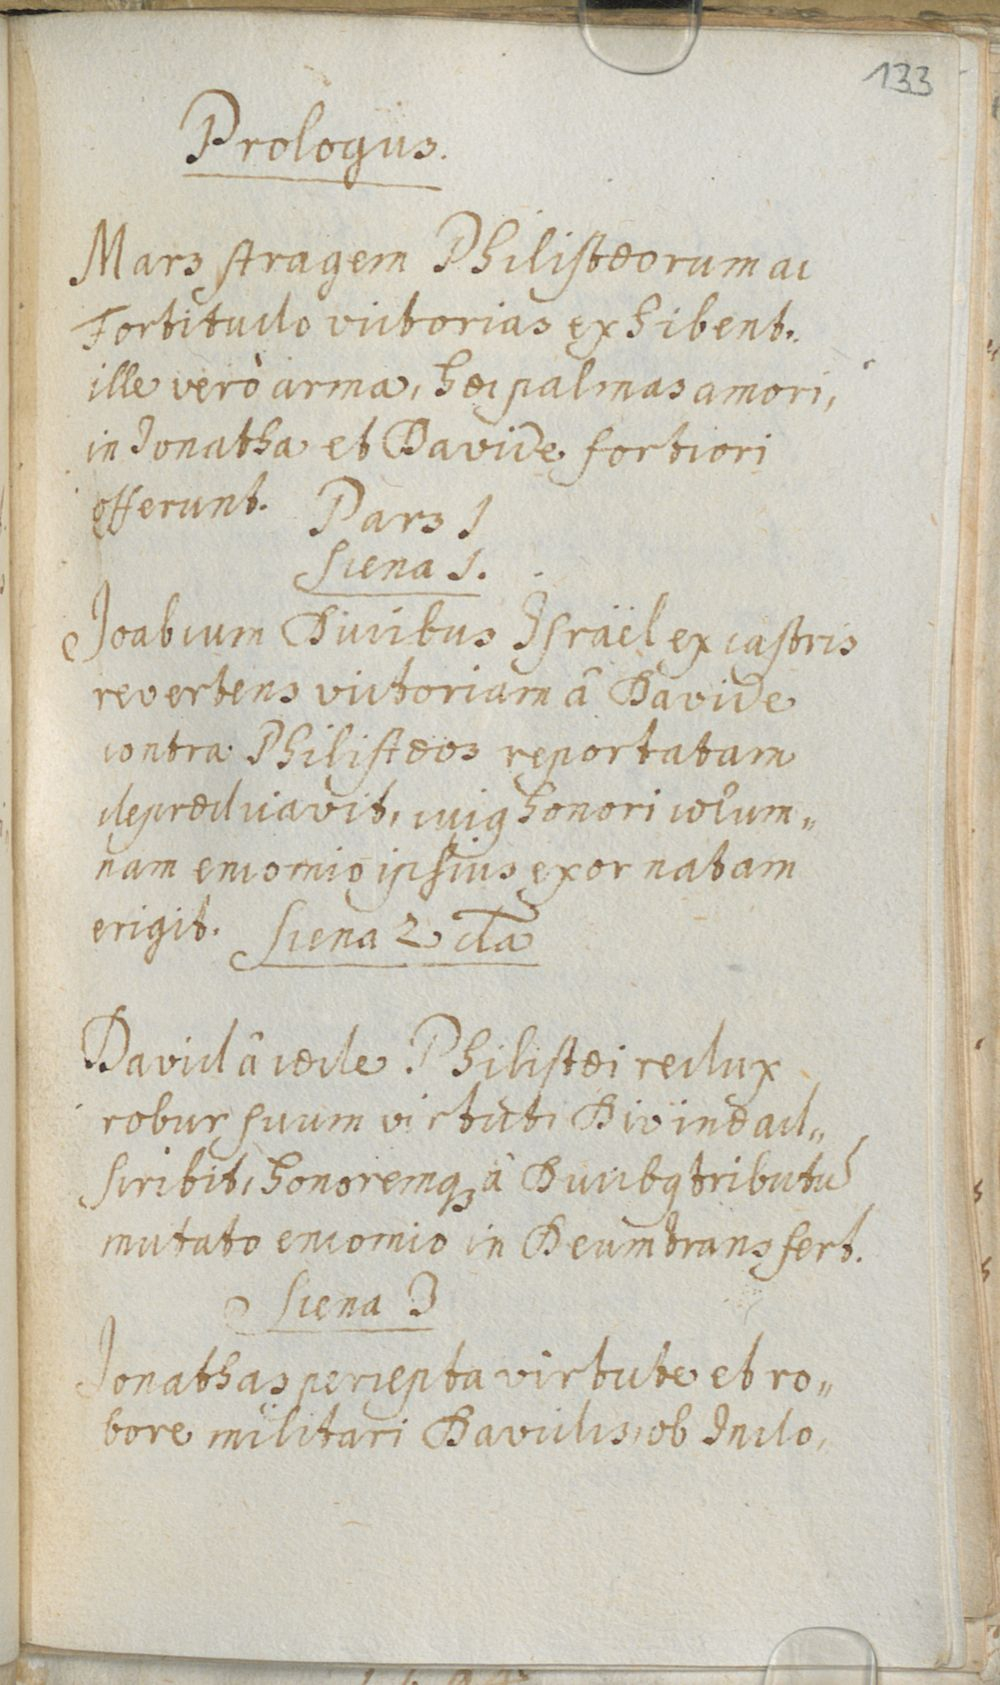 133
Prologus.
Mars stragem Philistæorum ac
Fortitudo victorias exhibent.
ille verò arma, hæc palmas amori,
in Jonatha et Davide fortiori
offerunt.
Pars 1
Scena 1.
Joab cum Ducibus Israël ex castris
revertens victoriam â Davide
contra Philistæos reportatam
deprædicavit, cuiq honori colum„
nam encomio ipsius exornatam
erigit.
Scena 2 da
David â cæde Philistæi redux
robur suum virtuti Divinæ ad„
scribit, honoremqꝫ â Ducibq tributū
mutato encomio in Deum transfert.
Scena 3
Jonathas percepta virtute et ro„
bore militari Davidis, ob Indo„